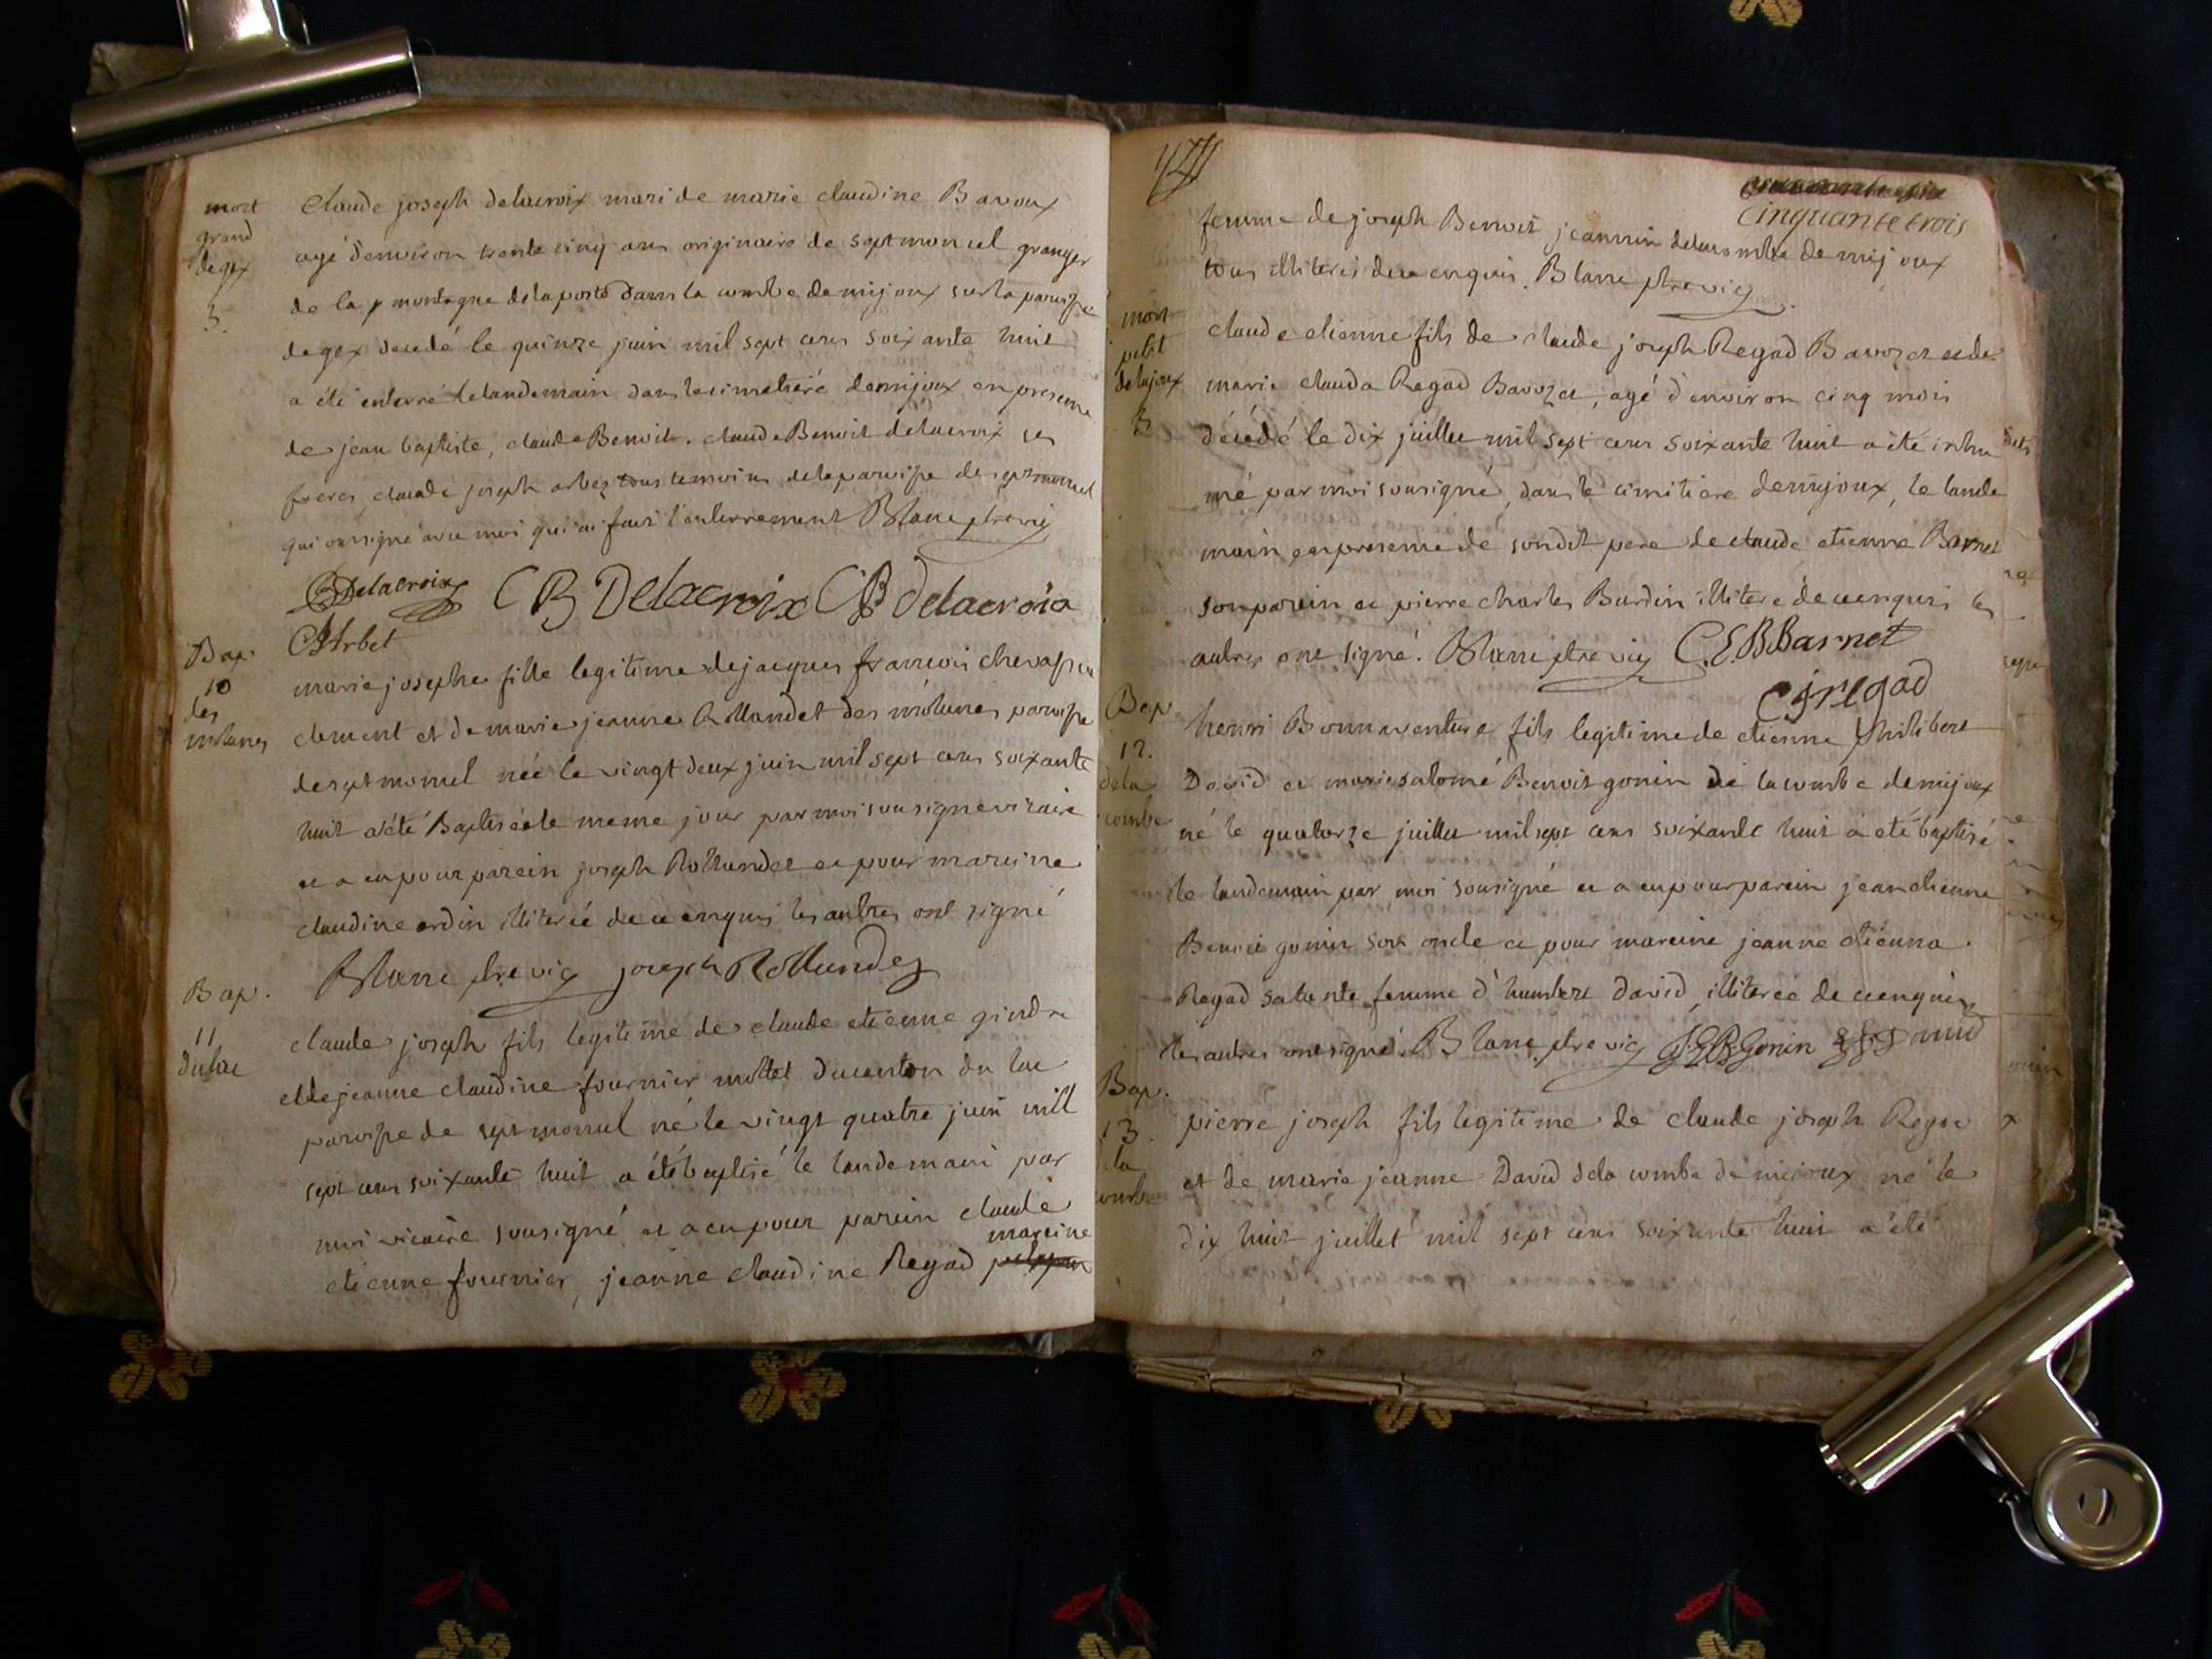 mort
grand
de gex
3.
Claude joseph delacroix mari de marie claudine Bavoux
agé d'environ trente cinq ans originaire de septmoncel granger
de la montagne de la poste dans la combe de mijoux sur la paroisse
de gex decedé le quinze juin mil sept cens soixante huit
a été enterré le landemain dans le cimetiere de mijoux en presence
de jean baptiste, claude Benoit. claude Benoit delacroix ses
freres, claude joseph arbez tous temoins de la paroisse de septmoncel
qui ont signé avec moi qui ai fait l'enterrement Blanc ptre vic
Delacroix CB Delacroix CB delacroix
CJ Arbet
Bap.
10
des
molunes
marie josephe fille legitime de jacques francois chevassu
clement et de marie jeanne Rollandet des molunes paroisse
de septmoncel née le vingt deux juin mil sept cens soixante
huit a été Baptisée le meme jour par moi sousigné vicaire
et a eu pour parein joseph Rollandet et pour mareine
claudine ordin illiterée de ce enquis les autres ont signé
Blanc ptre vic joseph Rollandez
Bap.
11
du lac
claude joseph fils legitime de claude etienne gindre
et de jeanne claudine fournier mottet du canton du lac
paroisse de septmoncel né le vingt quatre juin mill
sept cens soixante huit a été baptisé le landemain par
moi vicaire sousigné et a eu pour parein claude
mareine
etienne fournier, jeanne claudine Regad
cinquante trois
femme de joseph Benoit jeannin de la combe de mijoux
tous illiterés de ce enquis. Blanc ptre vic
mort
petit
de lajoux
3
claude etienne fils de claude joseph Regad Bavozet et de
marie clauda Regad Bavozet, agé d'environ cinq mois
décédé le dix juillet mil sept cens soixante huit a été inhu
mé par moi sousigné, dans le cimitiere de mijoux, le lande
main en presence de sondit pere de claude etienne Barnet
son parein et pierre charles Burdin illiteré de ce enquis les
autres ont signé. Blanc ptre vic C.E.B Barnet
CJ regad
Bap.
12.
de la
combe
henri Bonnaventure fils legitime de etienne philibert
David et marie salomé Benoit gonin de la combe de mijoux
né le quatorze juillet mil sept cens soixante huit a été baptisé
le landemain par moi sousigné et a eu pour parein jean etienne
Benoit gonin son oncle et pour mareine jeanne etienna
Regad femme d'humbert david, illiterée de ce enquis,
les autres ont signé. Blanc ptre vic J.E.B. Gonin
Bap.
13.
la
combe
pierre joseph fils legitime de claude joseph Regad
et de marie jeanne David de la combe de mijoux né le
dix huit juillet mil sept cens soixante huit a été